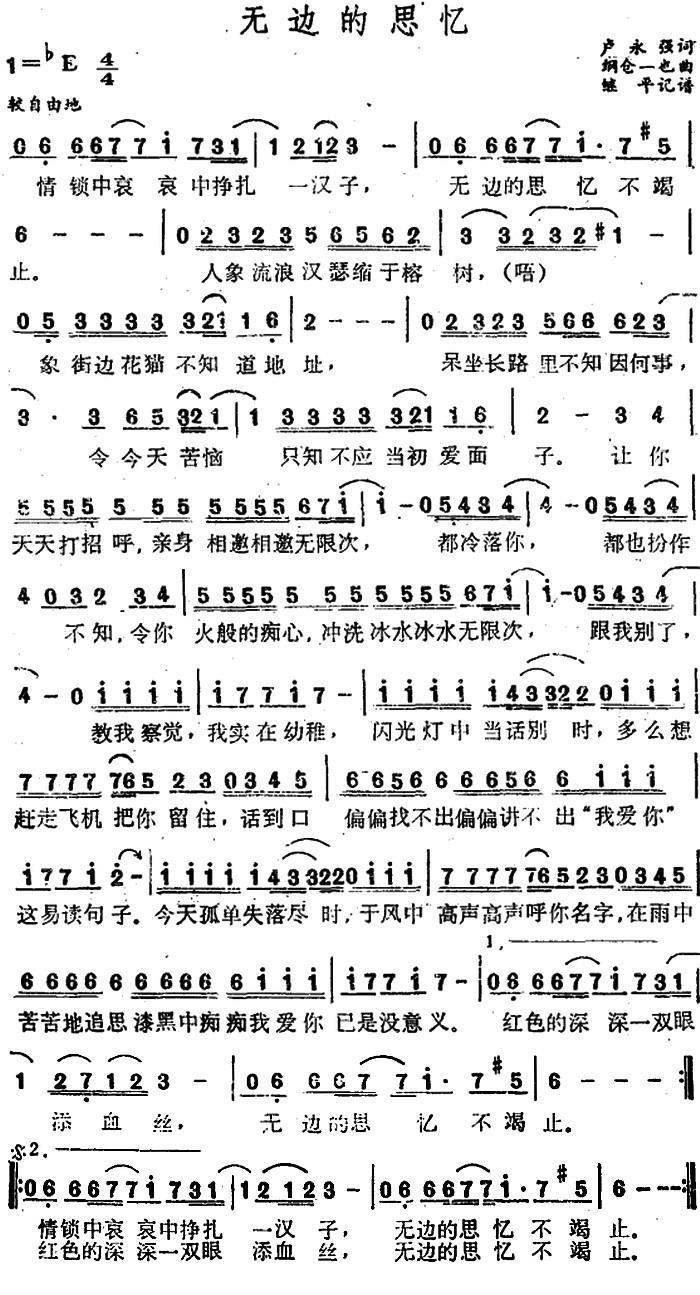 无边的思忆
卢永强词
1=♭E 4/4
纲仓一也曲
继平记谱
较自由地
0 6 6 6 7 7 i 7 3 1 | 1 2 1 2 3 - | 0 6 6 6 7 7 i· 7 #5 |
情锁中哀 哀中挣扎 一汉子， 无边的思 忆 不 竭
6 - - - | 0 2 3 2 3 2 3 5 6 5 6 5 6 2 | 3 3 2 3 2 #1 - |
止。 人象流浪汉瑟缩于榕 树，(唔)
0 5 3 3 3 3 3 2 1 1 6 | 2 - - - | 0 2 3 2 3 5 6 6 6 2 3 |
象街边花猫不知 道地 址， 呆坐长路里不知因何事，
3 · 3 6 5 3 2 1 | 1 3 3 3 3 3 2 1 1 6 | 2 - 3 4 |
令今天苦恼 只知不应当初爱面 子。 让你
5 5 5 5 5 5 5 5 5 5 5 5 5 6 7 i | i - 0 5 4 3 4 | 4 - 0 5 4 3 4 |
天天打招呼，亲身 相邀相邀无限次， 都冷落你， 都也扮作
4 0 3 2 3 4 | 5 5 5 5 5 5 5 5 5 5 5 5 5 6 7 i | i - 0 5 4 3 4 |
不知，令你 火般的痴心，冲洗冰水冰水无限次， 跟我别了，
4 - 0 i i i i | i 7 7 i 7 - | i i i i i 4 3 3 2 2 0 i i i |
教我察觉，我实在幼稚， 闪光灯中 当话别 时，多么想
7 7 7 7 7 6 5 2 3 0 3 4 5 | 6 6 5 6 6 6 6 5 6 6 i i i |
赶走飞机 把你 留住，话到口 偏偏找不出偏偏讲不 出“我爱你”
i 7 7 i 2 - | i i i i i 4 3 3 2 2 0 i i i | 7 7 7 7 7 6 5 2 3 0 3 4 5 |
这易读句子。今天孤单失落尽 时，于风中 高声高声呼你名字，在雨中
1.
6 6 6 6 6 6 6 6 6 i i i | i 7 7 i 7 - | 0 6 6 6 7 7 i 7 3 1 |
苦苦地追思漆黑中痴痴我爱你 已是没意义。 红色的深 深一双眼
1 2 7 1 2 3 - | 0 6 6 6 7 7 i· 7 #5 | 6 - - - :‖
添 血 丝， 无边的思 忆 不 竭 止。
2.
‖: 0 6 6 6 7 7 i 7 3 1 | 1 2 1 2 3 - | 0 6 6 6 7 7 i · 7 #5 | 6 - - - :‖
情锁中哀 哀中挣扎 一汉 子， 无边的思 忆 不 竭 止。
红色的深 深一双眼 添血 丝， 无边的思 忆 不 竭 止。